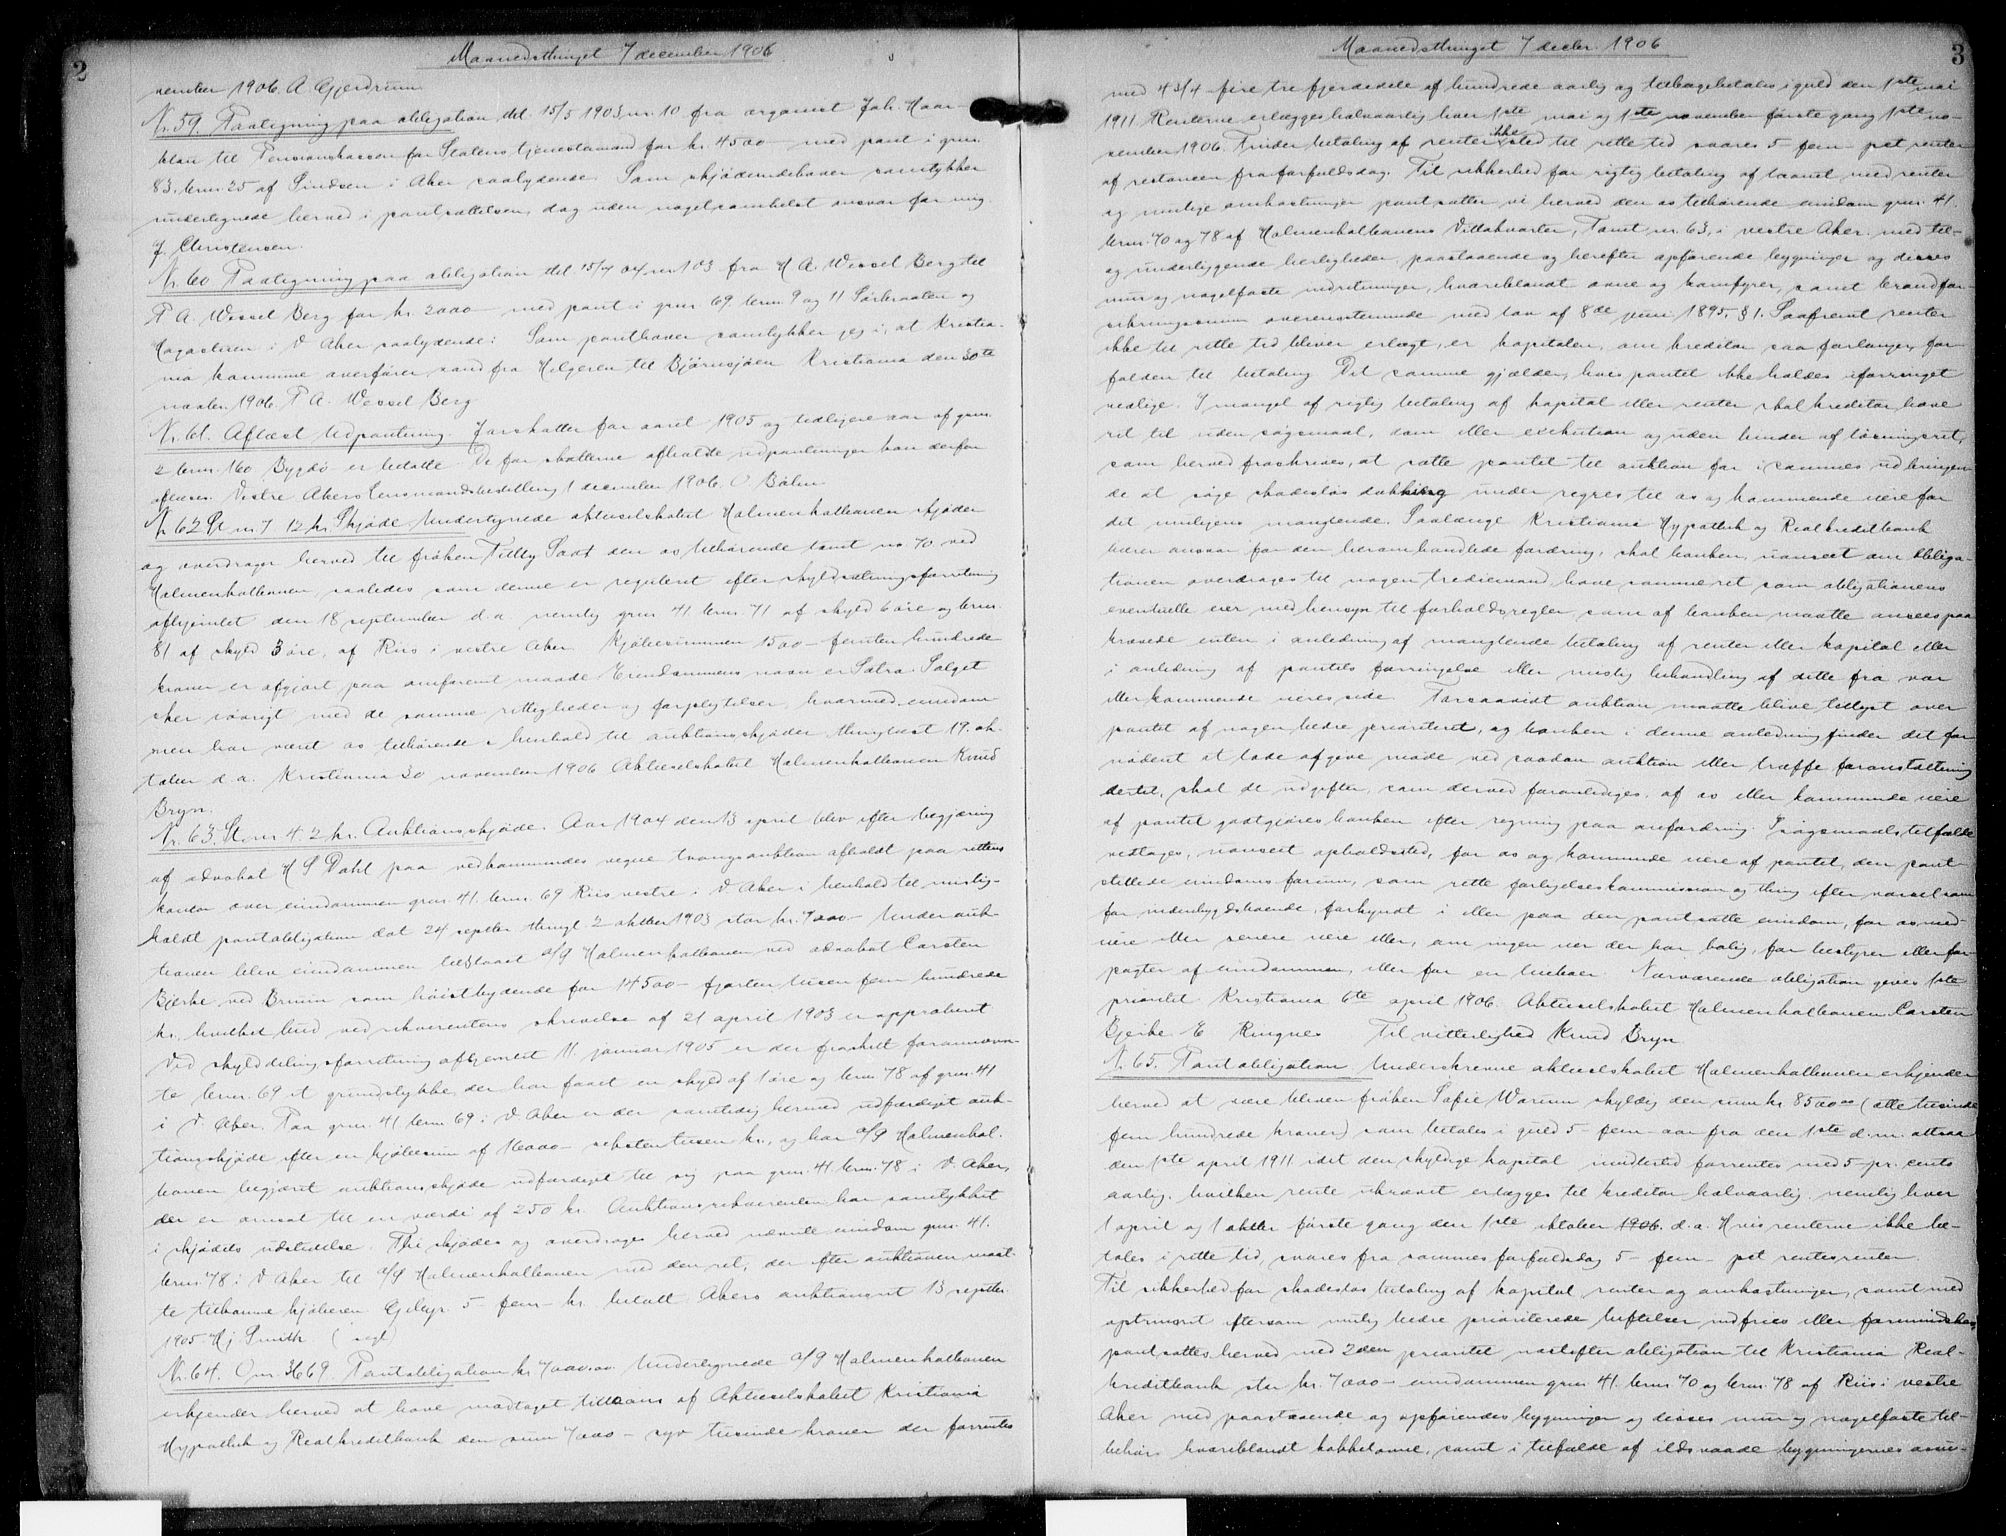 2
Maanedsthinget 7 december 1906
vember 1906. A Gjerdrum
Nr. 59. Paategning paa obligation dat. 15/5 1903, nr. 10 fra organist Joh. Haar-
klou til Pensionskassen for Statens tjenestemænd for kr. 4500 — med pant i grnr.
83. brnr. 25 af Sindsen i Aker saalydende: Som skjødeindehaver samtykker
undertegnede herved i pantsættelsen, dog uden nogetsomhelst ansvar for mig
J. Christensen.
Nr. 60 Paategning paa obligation dat 15/4 04 nr 103 fra H A. Wessel Berg til
P A. Wessel Berg for kr. 2000 — med pant i grnr. 69. brnr. 9 og 11 Sørbraaten og
i V Aker saalydende: Som panthaver samtykker jeg i, at Kristia-
nia kommune overfører vand fra Helgeren til Bjørnsjøen Kristiania den 30te
novbr. 1906. P A. Wessel Berg
Nr. 61. Aflæst Udpantning. Jorskatter for aaret 1905 og tidligere aar af gnr.
2 brnr. 160 Bygdø er betalte. De for skatterne afholdte udpantninger kan derfor
aflæses. Vestre Akers Lensmandsbestilling 1 december 1906. O Bølin
Nr 62 St nr 7 12 kr. Skjøde Undertegnede aktieselskabet Holmenkolbanen skjøder
og overdrager herved til frøken Tilly Saxt den os tilhørende tomt no. 70 ved
Holmenkolbanen, saaledes som denne er reguleret efter skyldsætningsforretning
afhjemlet den 18 september d.a. nemlig grnr. 41 brnr. 71 af skyld 6 øre og brnr.
81 af skyld 3 øre, af Riis i vestre Aker. Kjøbesummen 1500 — femten hundrede
kroner er afgjort paa omforenet maade Eiendommens navn er Solra. Salget
sker iøvrigt med de samme rettigheder og forpligtelser, hvormed eiendom-
men har været os tilhørende i henhold til auktionsskjøder thinglæst 19. ok-
tober d.a. Kristiania 30 november 1906 Aktieselskabet Holmenkolbanen Knud
Bryn.
Nr. 63. St. nr 4 2 kr. Auktionsskjøde. Aar 1904 den 13 april blev efter begjæring
af advokat H S Dahl paa vedkommendes vegne tvangsauktion afholdt paa rettens
kontor over eiendommen grnr. 41. brnr. 69 Riis vestre i V Aker i henhold til mislig-
holdt pantobligation dat 24 septbr thingl 2 oktbr 1903 stor kr. 7000 — Under auk-
tionen blev eiendommen tilslaaet a/s Holmenkolbanen ved advokat Carsten
Bjerke ved Bruun som høistbydende for 14500 — fjorten tusen fem hundrede
kr. hvilket bud ved rekvirentens skrivelse af 21 april 1903 er approberet
Ved skylddelingsforretning afhjemlet 11. januar 1905 er der fraskilt forannævn-
te brnr. 69 et grundstykke, der har faaet en skyld af 1 øre og brnr. 78 af grnr. 41
i V. Aker. Paa grnr. 41 brnr. 69 i V Aker er der samtidig hermed udfærdiget auk-
tionsskjøde efter en kjøbesum af 16000 — seksten tusen kr., og har a/s Holmenkol-
banen begjæret auktionsskjøde udfærdiget til sig paa grnr. 41 brnr. 78 i V Aker,
der er ansat til en værdi af 250 kr. Auktionsrekvirenten har samtykket
i skjødets udstedelse. Thi skjødes og overdrages herved nævnte eiendom grnr. 41.
brnr. 78 i V Aker til a/s Holmenkolbanen med den ret, der efter auktionen maat-
te tilkomme kjøberen Gebyr 5 — fem — kr. betalt. Akers auktionsret 13 septbr.
1905 Hj Smith (segl)
Nr. 64. O nr. 3669. Pantobligation kr. 7000.00. Undertegnede a/s Holmenkolbanen
erkjender herved at have modtaget tillaans af Aktieselskabet Kristiania
Hypothek og Realkreditbank den sum 7000 — syv tusinde kroner der forrentes
3
Maanedsthinget 7 decbr. 1906
med 4 3/4 — fire tre fjerdedele af hundrede aarlig og tilbagebetales i guld den 1ste mai
1911. Renterne erlægges halvaarlig hver 1ste mai og 1ste november første gang 1ste no-
vember 1906. Finder betaling af renter ikke sted til rette tid svares 5 — fem — pct renter
af restancen fra forfaldsdag. Til sikkerhed for rigtig betaling af laanet med renter
og mulige omkostninger pantsætter vi herved den os tilhørende eiendom grnr. 41.
brnr. 70 og 78 af Holmenkolbanens Villakvarter, Tomt nr. 63, i vestre Aker med til-
og underliggende herligheder, paastaaende og herefter opførende bygninger og disses
mur og nagelfaste indretninger, hvoriblandt ovne og komfyrer, samt brandfor-
sikringssum overensstemmende med lov af 8de juni 1895, § 1. Saafremt renter
ikke til rette tid bliver erlagt, er kapitalen, om kreditor saa forlanger, for-
falden til betaling. Det samme gjælder, hvis pantet ikke holdes uforringet
vedlige. I mangel af rigtig betaling af kapital eller renter skal kreditor have
ret til uden søgsmaal, dom eller exekution og uden hinder af løsningsret,
som herved fraskrives, at sætte pantet til auktion for i sammes udbringen-
de at søge skadesløs dækning under regres til os og kommende eiere for
det muligens manglende. Saalænge Kristiania Hypothek og Realkreditbank
bærer ansvar for den heromhandlede fordring, skal banken, uanseet om obliga-
tionen overdrages til nogen trediemand, have samme ret som obligationens
eventuelle eier med hensyn til forholdsregler, som af banken maatte ansees paa-
krævede enten i anledning af manglende betaling af renter eller kapital eller
i anledning af pantets forringelse eller mislig behandling af dette fra vor
eller kommende eieres side. Forsaavidt auktion maatte blive tillyst over
pantet af nogen bedre prioriteret, og banken i denne anledning finder det for-
nødent at lade afgive møde ved saadan auktion eller træffe foranstaltning
dertil, skal de udgifter, som derved foranlediges, af os eller kommende eiere
af pantet godtgjøres banken efter regning paa anfordring. I søgsmaals tilfælde
vedtages, uanseet opholdssted, for os og kommende eiere af pantet, den pant-
stillede eiendoms forum, som rette forligelseskommission og thing efter varsel som
for indenbygdsboende, forkyndt i eller paa den pantsatte eiendom, for os, med-
eiere eller senere eiere eller, om ingen eier der har bolig, for bestyrer eller for-
pagter af eiendommen, eller for en beboer. Nærværende obligation gives 1ste
prioritet Kristiania 6te april 1906. Aktieselskabet Holmenkolbanen Carsten
Bjerke E Ringnes Til vitterlighed Knud Bryn
N. 65. Pantobligation Underskrevne aktieselskabet Holmenkolbanen erkjender
herved at være bleven frøken Sofie Warum skyldig den sum kr. 8500 00 (otte tusinde
fem hundrede kroner) som betales i guld 5 — fem — aar fra den 1ste d.m. altsaa
den 1ste april 1911 idet den skyldige kapital imidlertid forrentes med 5 — pr. cents
aarlig, hvilken rente ukrævet erlægges til kreditor halvaarlig, nemlig hver
1 april og 1 oktbr første gang den 1ste oktober 1906. d.a. Hvis renterne ikke be-
tales i rette tid, svares fra sammes forfaldsdag 5 — fem — pct rentesrenter
Til sikkerhed for skadesløs betaling af kapital, renter og omkostninger, samt med
oprinsret eftersom mulig bedre prioriterede heftelser indfries eller formindskes
pantsættes herved med 2den prioritet næstefter obligation til Kristiania Real-
kreditbank stor kr. 7000 — eiendommen grnr. 41. brnr 70 og brnr. 78 af Riis i vestre
Aker med paastaaende og opførendes bygninger og disses mur og nagelfaste til-
behør, hvoriblandt kakkelovne, samt i tilfælde af ildsvaade bygningernes assu-